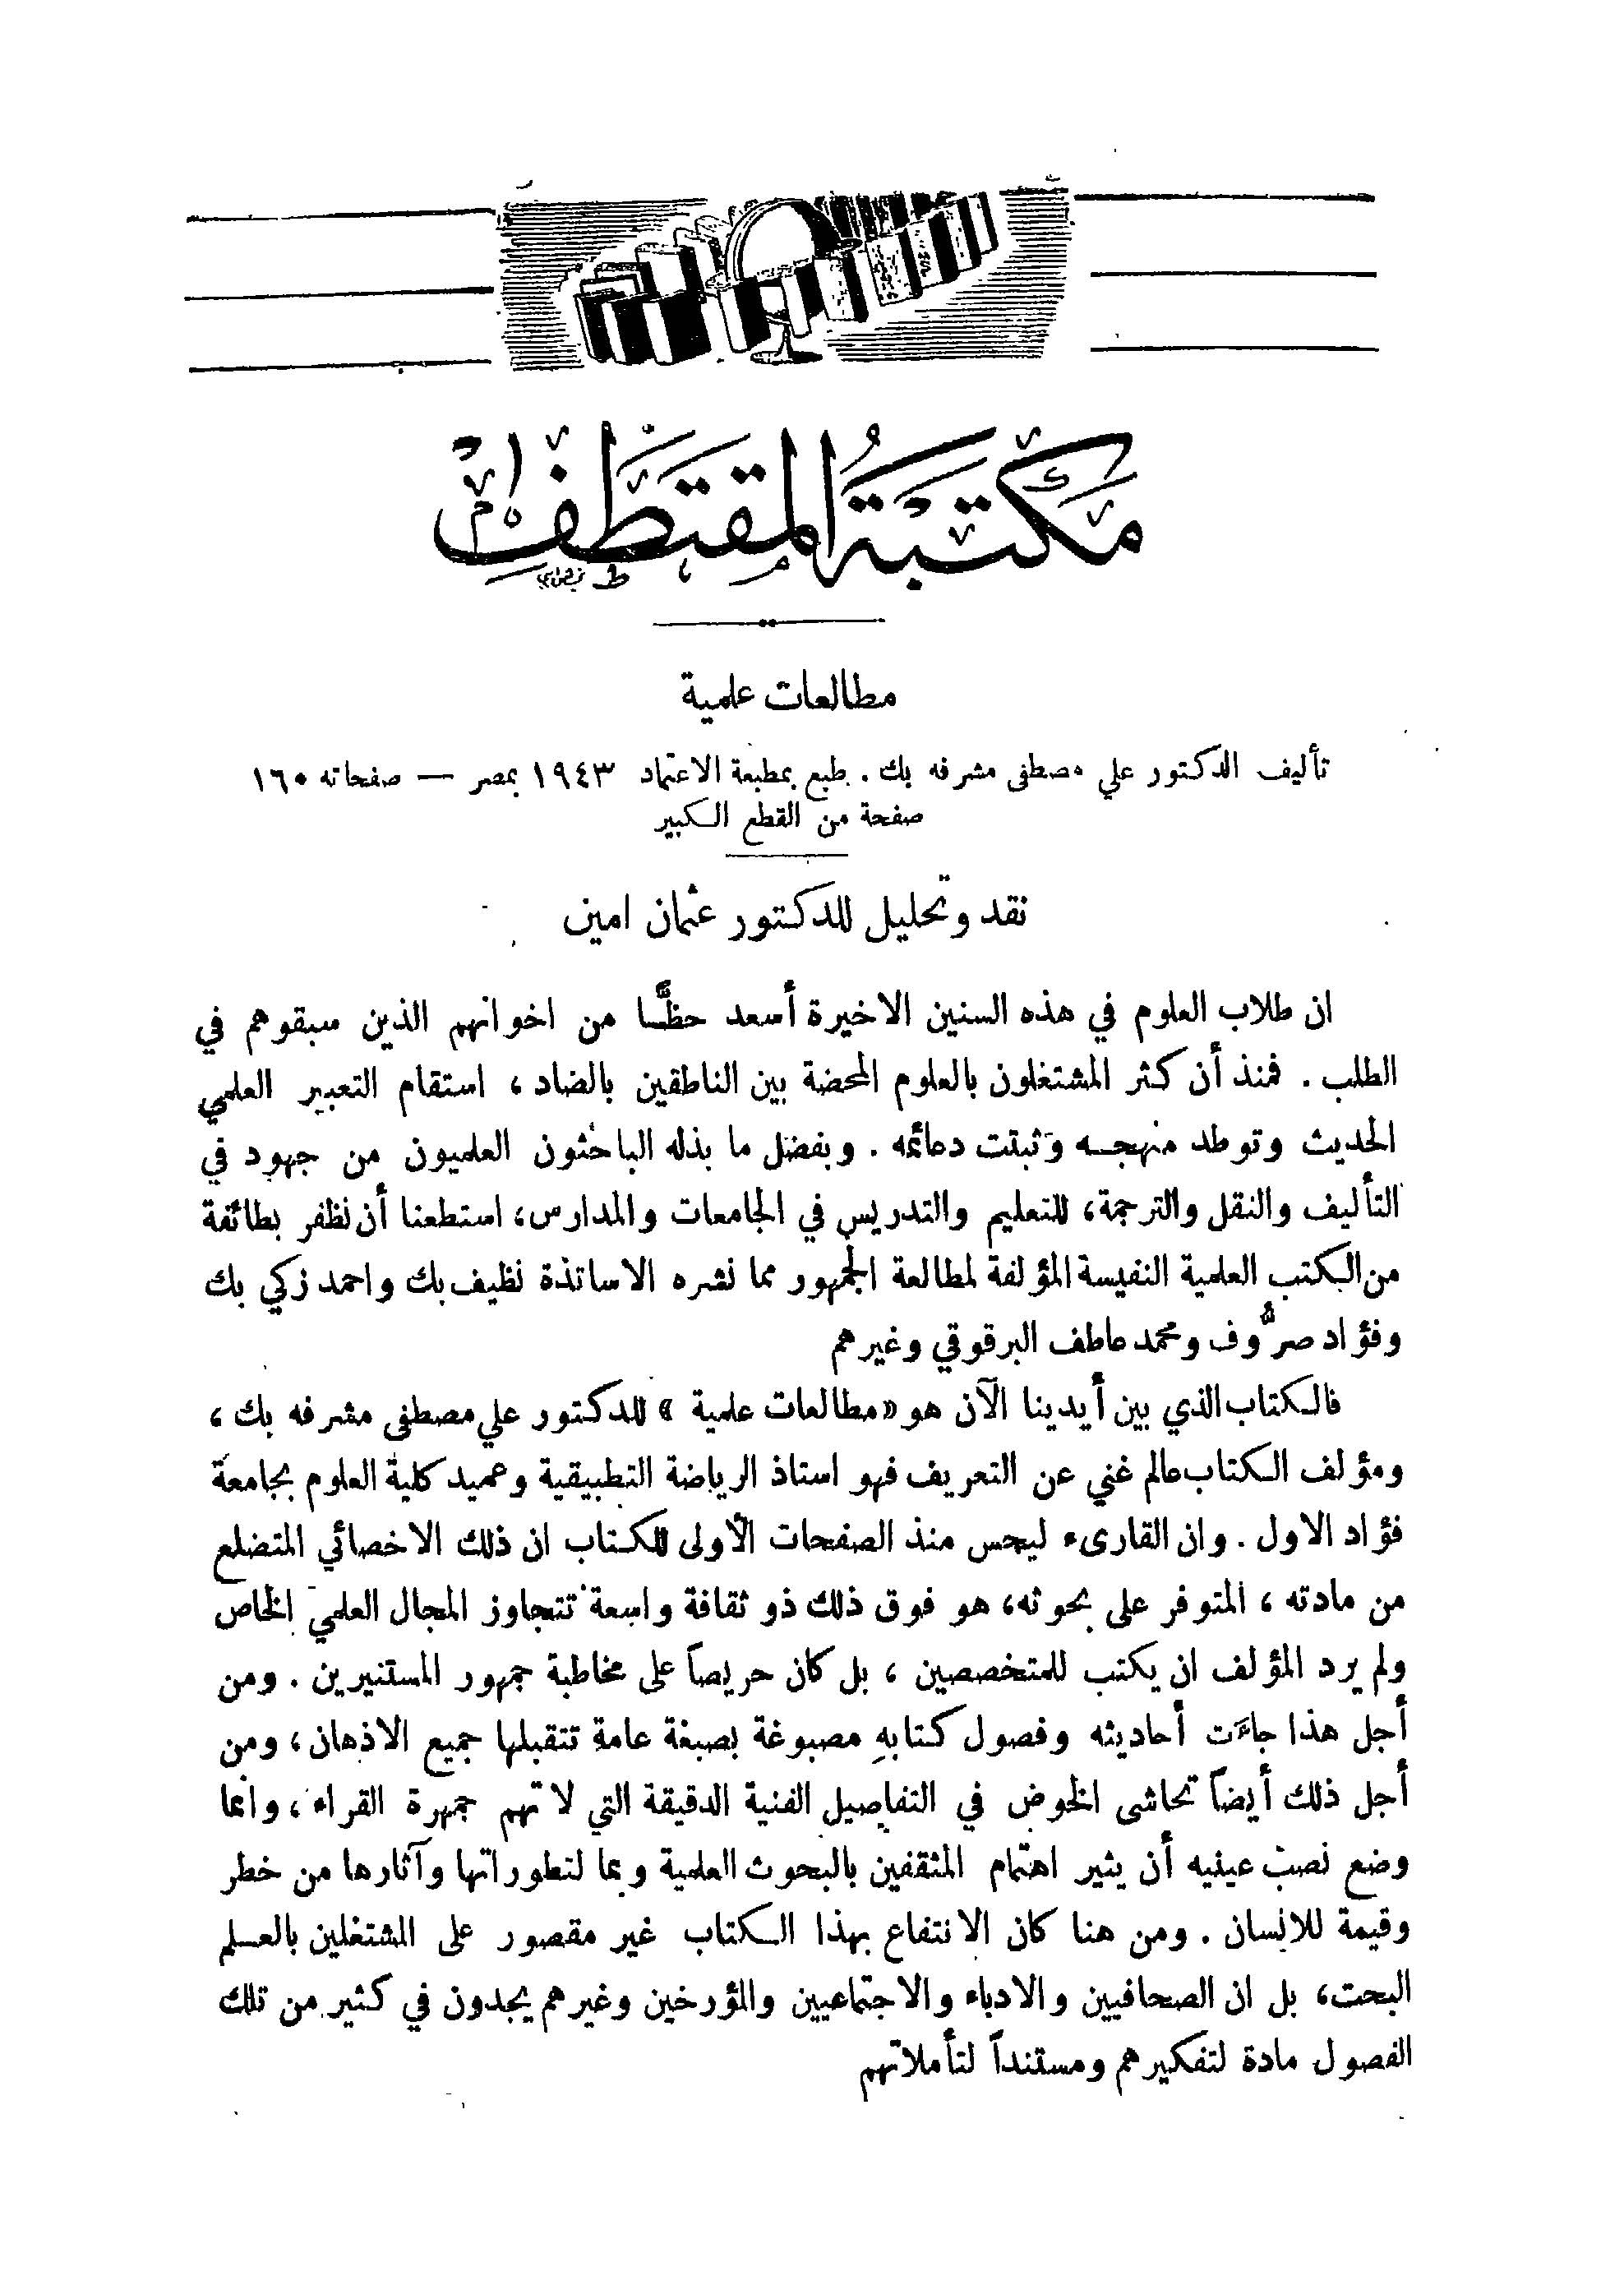 مكتبة المقتطف
مطالعات علمية
تأليف الدكتور علي مصطفى مشرفه بك . طبع بمطبعة الاعتماد ١٩٤٣ بمصر — صفحاته ١٦٠
صفحة من القطع الكبير
نقد وتحليل للدكتور عثمان امين
ان طلاب العلوم في هذه السنين الاخيرة أسعد حظًّا من اخوانهم الذين سبقوهم في
الطلب . فمنذ أن كثر المشتغلون بالعلوم المحضة بين الناطقين بالضاد ، استقام التعبير العلمي
الحديث وتوطد منهجه وثبتت دعائمه . وبفضل ما بذله الباحثون العلميون من جهود في
التأليف والنقل والترجمة، للتعليم والتدريس في الجامعات والمدارس، استطعنا أن نظفر بطائفة
من الكتب العلمية النفيسة المؤلفة لمطالعة الجمهور مما نشره الاساتذة نظيف بك واحمد زكي بك
وفؤاد صرُّوف ومحمد عاطف البرقوقي وغيرهم
فالكتاب الذي بين أيدينا الآن هو «مطالعات علمية» للدكتور علي مصطفى مشرفه بك ،
ومؤلف الكتاب عالم غني عن التعريف فهو استاذ الرياضة التطبيقية وعميد كلية العلوم بجامعة
فؤاد الاول . وان القارىء ليحس منذ الصفحات الأولى للكتاب ان ذلك الاخصائي المتضلع
من مادته ، المتوفر على بحوثه، هو فوق ذلك ذو ثقافة واسعة تتجاوز المجال العلمي الخاص
ولم يرد المؤلف ان يكتب للمتخصصين ، بل كان حريصاً على مخاطبة جمهور المستنيرين . ومن
أجل هذا جاءَت أحاديثه وفصول كتابهِ مصبوغة بصبغة عامة تتقبلها جميع الاذهان ، ومن
أجل ذلك أيضاً تحاشى الخوض في التفاصيل الفنية الدقيقة التي لا تهم جمهرة القراء ، وانما
وضع نصب عينيه أن يثير اهتمام المثقفين بالبحوث العلمية وبما لتطوراتها وآثارها من خطر
وقيمة للانسان . ومن هنا كان الانتفاع بهذا الكتاب غير مقصور على المشتغلين بالعلم
البحت، بل ان الصحافيين والادباء والاجتماعيين والمؤرخين وغيرهم يجدون في كثير من تلك
الفصول مادة لتفكيرهم ومستنداً لتأملاتهم